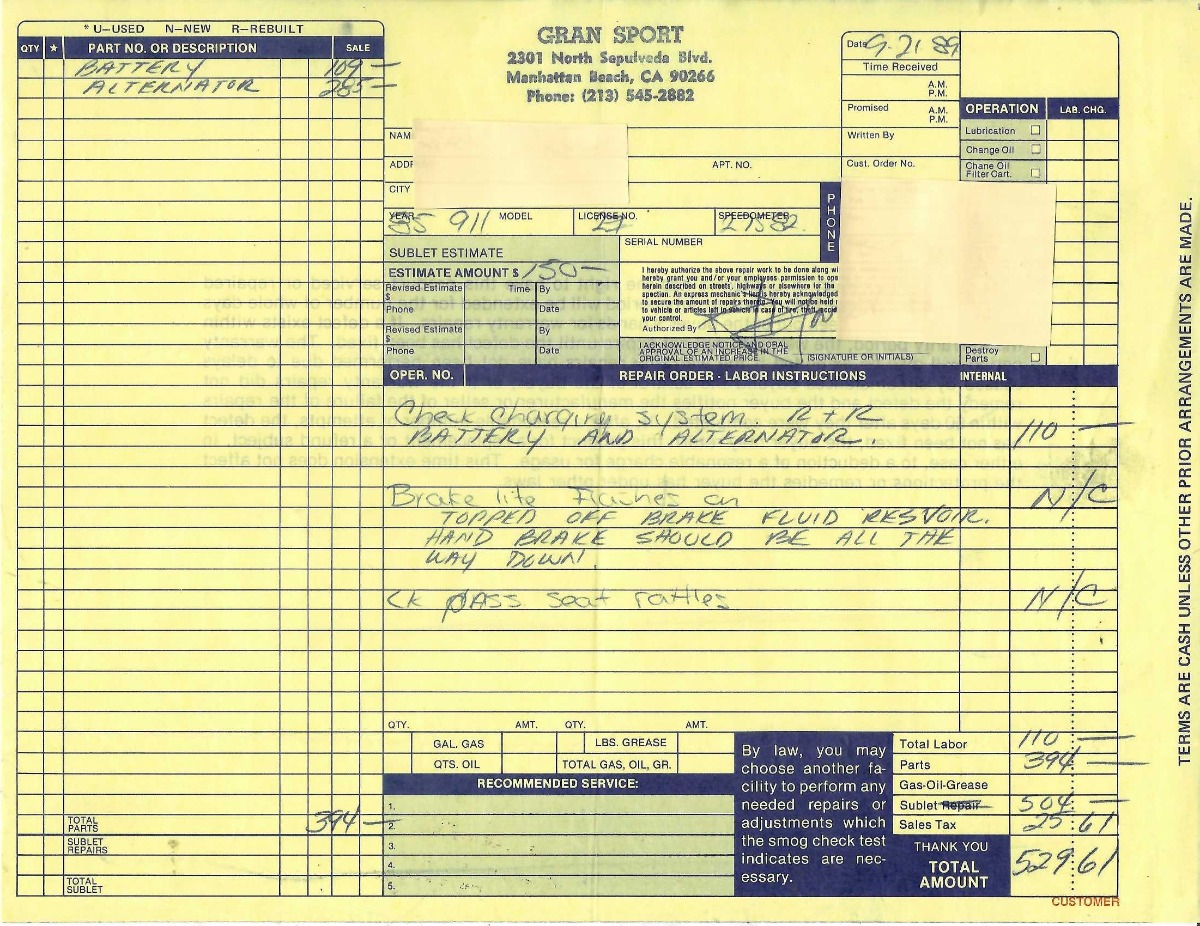 * U-USED N-NEW R-REBUILT
QTY ★ PART NO. OR DESCRIPTION SALE
BATTERY 109 —
ALTERNATOR 285 —
GRAN SPORT
2301 North Sepulveda Blvd.
Manhattan Beach, CA 90266
Phone: (213) 545-2882
Date 9-21 89
Time Received
A.M.
P.M.
Promised A.M.
P.M.
Written By
Cust. Order No.
OPERATION LAB. CHG.
Lubrication
Change Oil
Chane Oil
Filter Cart.
NAM
ADD
APT. NO.
CITY
PHONE
YEAR MODEL LICENSE NO. SPEEDOMETER
85 911 27582
SERIAL NUMBER
SUBLET ESTIMATE
ESTIMATE AMOUNT $ 150 —
Revised Estimate Time By
$
Phone Date
Revised Estimate By
$
Phone Date
I hereby authorize the above repair work to be done along wi
hereby grant you and/or your employees permission to ope
herein described on streets, highways or elsewhere for the
spection. An express mechanic's lien is hereby acknowledged
to secure the amount of repairs thereto. You will not be held
to vehicle or articles left in vehicle in case of fire, theft, accid
your control.
Authorized By
I ACKNOWLEDGE NOTICE AND ORAL
APPROVAL OF AN INCREASE IN THE
ORIGINAL ESTIMATED PRICE. (SIGNATURE OR INITIALS)
Destroy
Parts
OPER. NO. REPAIR ORDER - LABOR INSTRUCTIONS INTERNAL
Check charging system. R + R
BATTERY AND ALTERNATOR. 110 —
Brake lite Flashes on N/C
TOPPED OFF BRAKE FLUID RESVOIR.
HAND BRAKE SHOULD BE ALL THE
WAY DOWN.
CK PASS seat rattles N/C
QTY. AMT. QTY. AMT.
GAL. GAS LBS. GREASE
QTS. OIL TOTAL GAS, OIL, GR.
RECOMMENDED SERVICE:
1.
2.
3.
4.
5.
TOTAL
PARTS 394 —
SUBLET
REPAIRS
TOTAL
SUBLET
By law, you may
choose another fa-
cility to perform any
needed repairs or
adjustments which
the smog check test
indicates are nec-
essary.
Total Labor 110 —
Parts 394 —
Gas-Oil-Grease
Sublet Repair 504 —
Sales Tax 25 61
THANK YOU
TOTAL
AMOUNT 529 61
CUSTOMER
TERMS ARE CASH UNLESS OTHER PRIOR ARRANGEMENTS ARE MADE.